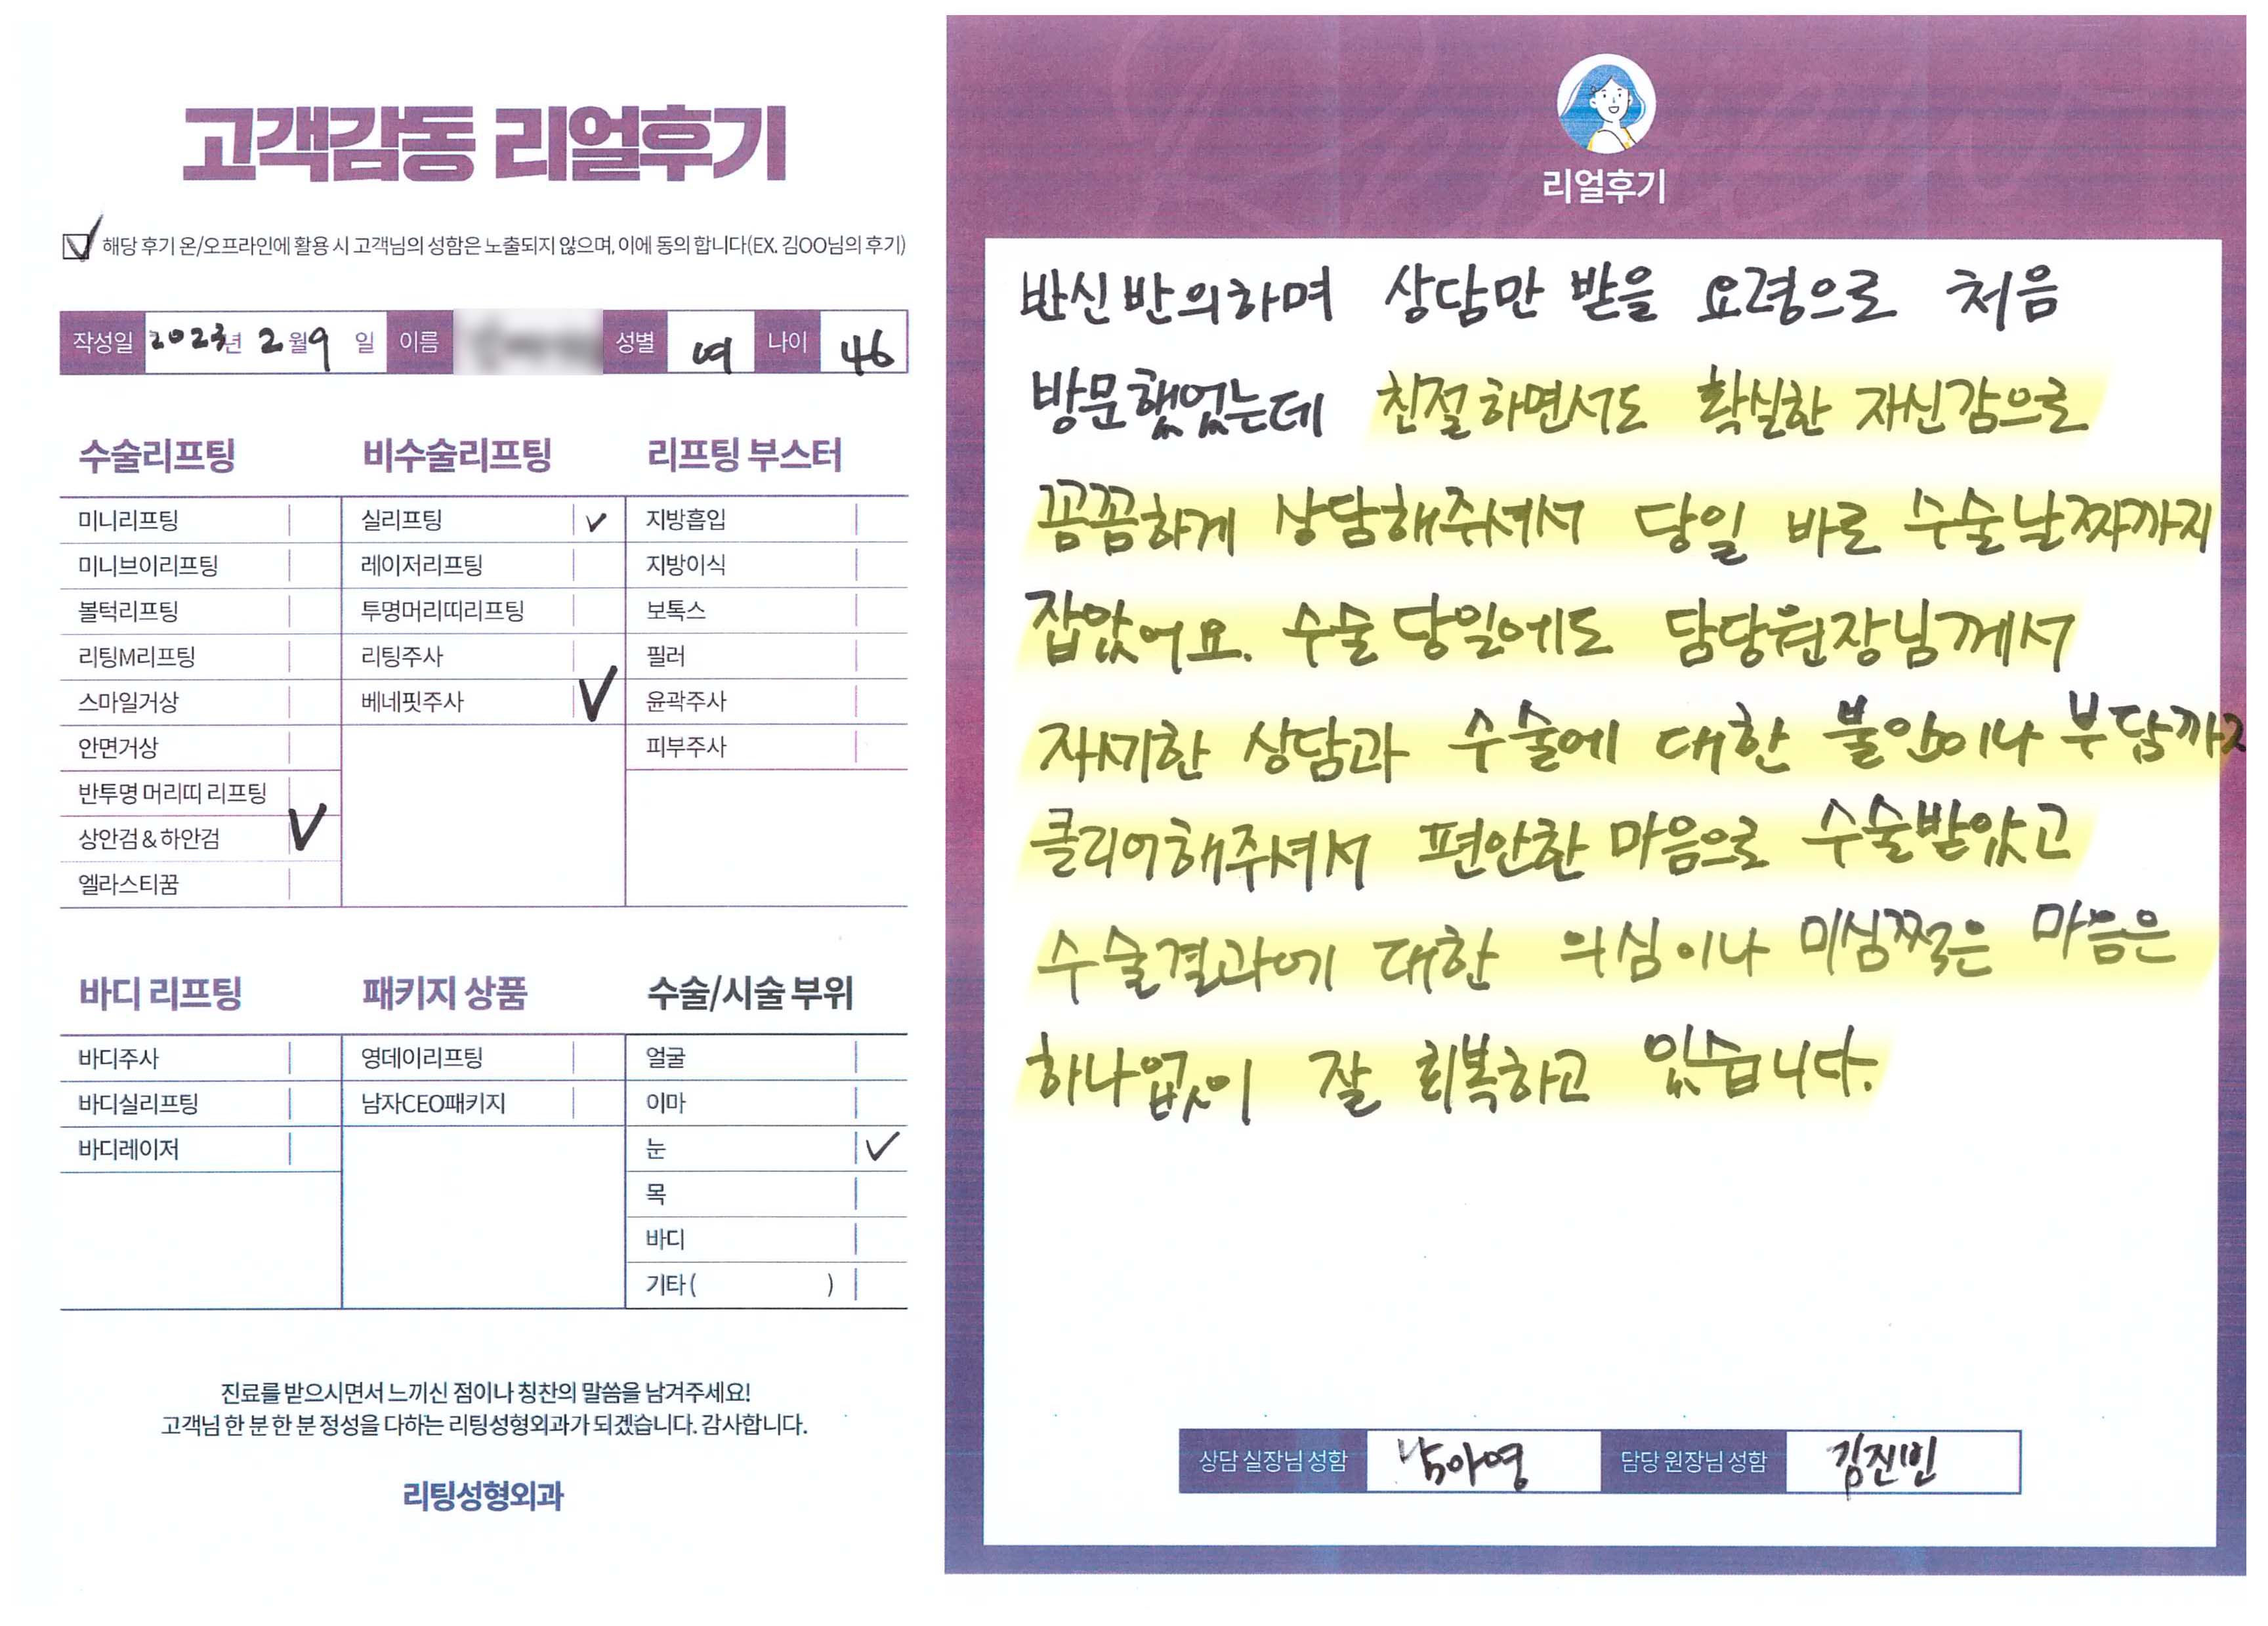 고객감동 리얼후기
해당 후기 온/오프라인에 활용 시 고객님의 성함은 노출되지 않으며, 이에 동의 합니다(EX. 김OO님의 후기)
작성일 2023년 2월 9일 이름 성별 여 나이 46
수술리프팅 비수술리프팅 리프팅 부스터
미니리프팅 실리프팅 지방흡입
미니브이리프팅 레이저리프팅 지방이식
볼턱리프팅 투명머리띠리프팅 보톡스
리팅M리프팅 리팅주사 필러
스마일거상 베네핏주사 윤곽주사
안면거상 피부주사
반투명 머리띠 리프팅
상안검 & 하안검
엘라스티꿈
바디 리프팅 패키지 상품 수술/시술 부위
바디주사 영데이리프팅 얼굴
바디실리프팅 남자CEO패키지 이마
바디레이저 눈
목
바디
기타 ( )
진료를 받으시면서 느끼신 점이나 칭찬의 말씀을 남겨주세요!
고객님 한 분 한 분 정성을 다하는 리팅성형외과가 되겠습니다. 감사합니다.
리팅성형외과
리얼후기
반신반의하며 상담만 받을 요령으로 처음
방문했었는데 친절하면서도 확실한 자신감으로
꼼꼼하게 상담해주셔서 당일 바로 수술날짜까지
잡았어요. 수술 당일에도 담당원장님께서
자세한 상담과 수술에 대한 불안이나 부담까지
클리어해주셔서 편안한 마음으로 수술받았고
수술결과에 대한 의심이나 미심쩍은 마음은
하나없이 잘 회복하고 있습니다.
상담 실장님 성함 남아영 담당 원장님 성함 김진빈